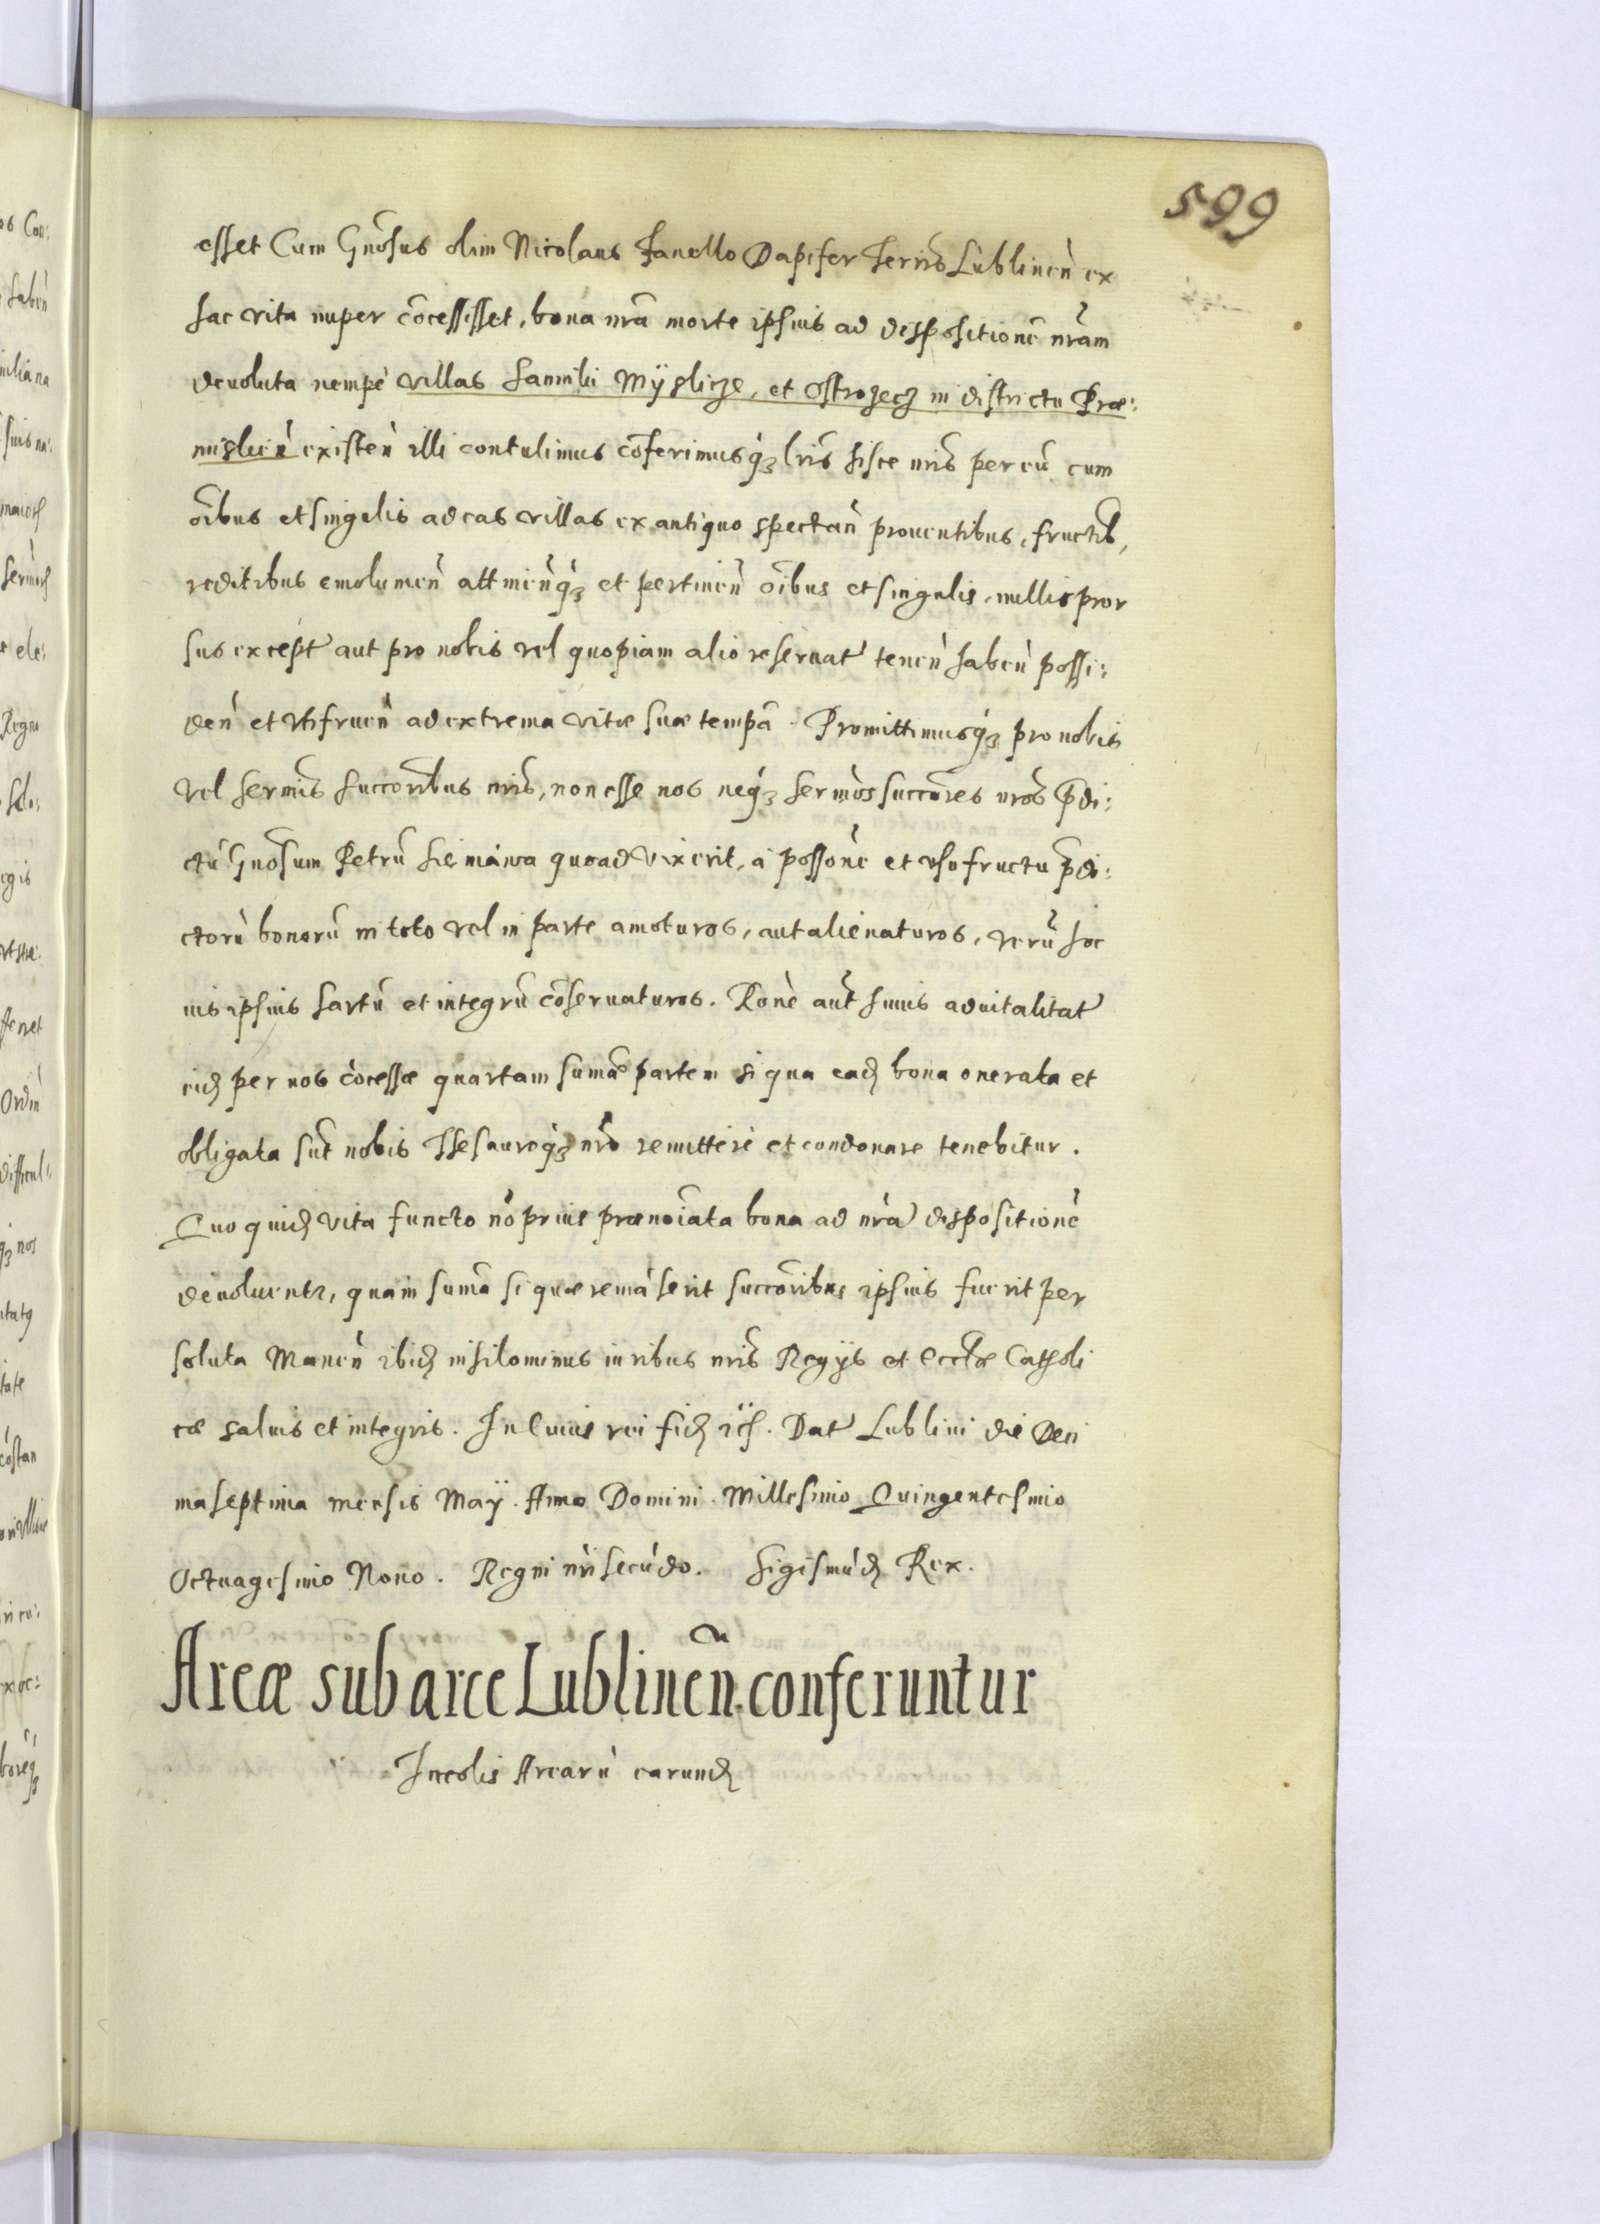 599
esset Cum Gnosus olim Nicolaus Fanello Dapifer Terris Lublinen ex
hac vita nuper cōcessisset, bona nrā morte ipsius ad dispositionē nram
devoluta nempè villas Sanniki Mÿslicze, et Ostrozecz in districtu Præ:
mislien existeñ illi contulimus cōferimusq3 lris hisce nris per eū cum
oībus et singulis ad eas villas ex antiquo spectañ proventibus, fructib,
reditibus emolumeñ attineñq3 et pertineñ oībus et singulis, nullis pror
sus except aut pro nobis vel quopiam alio reservat teneñ habeñ possi:
deñ et vtifrueñ ad extrema vitæ suæ tempā. Promittimusq3 pro nobis
vel sermis succoribus nris, non esse nos neq3 sermos succores nros p̄di:
ctū Gnosum Petrū quoad vixerit, à possōne et vsufructu p̄di:
ctorū bonorū in toto vel in parte amoturos, aut alienaturos, verū hoc
ius ipsius sartū et integrū cōservaturos. Rōne aut̄ huius advitalitat
eid per nos cōcessæ quartam sumæ partem si qua ead bona onerata et
obligata sut̄ nobis Thesauroq3 nrō remittere et condonare tenebitur.
Quo quid vita functo nō prius prænoīata bona ad nrā dispositionē
devoluentr, quàm suma si quæ remāserit succoribus ipsius fuerit per
soluta Maneñ ibid nihilominus iuribus nris Regÿs et Eccliæ Catholi
cæ salvis et integris. In Cuius rei fid Dat Lublini die Deci
maseptima mensis Maÿ. Anno Domini. Millesimo Quingentesimo
Octuagesimo Nono. Regni nri secūdo. Sigismūd Rex.
Areæ sub arce Lublineñ. conferuntur
Incolis Arearū earund